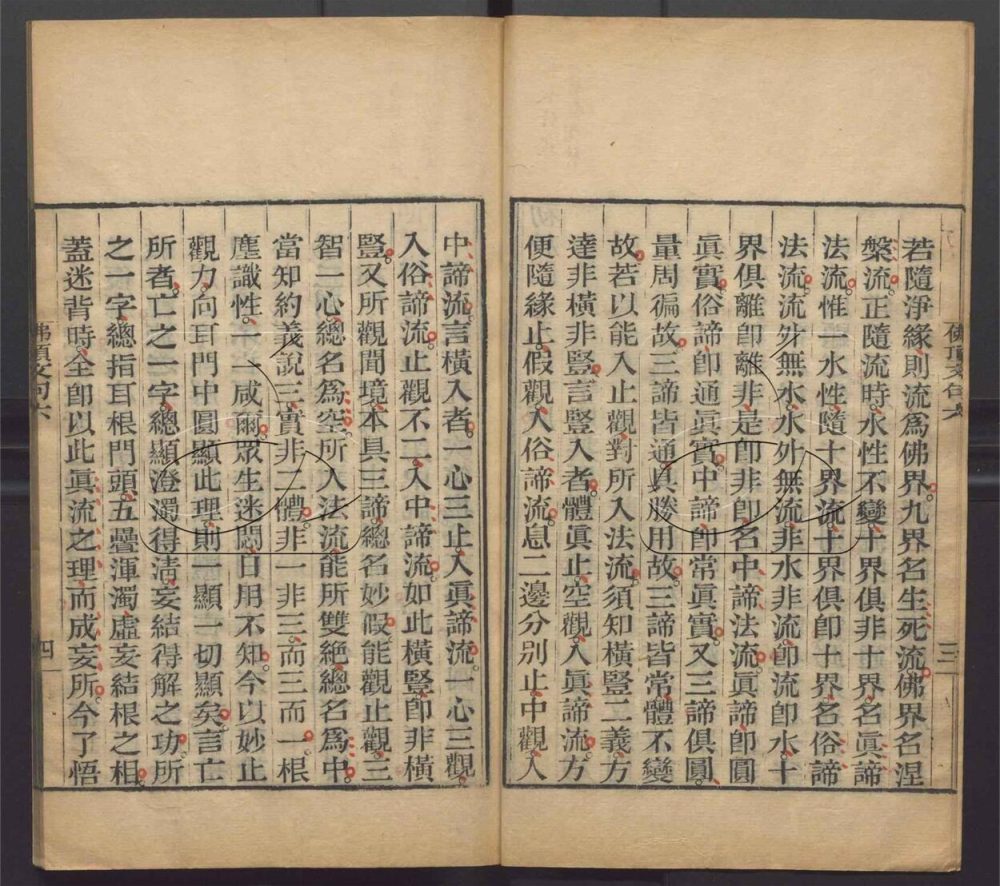 若隨淨緣則流爲佛界九界名生死流佛界名涅
槃流正隨流時水性不變十界俱非十界名眞諦
法流惟一水性隨十界流十界俱卽十界名俗諦
法流流外無水水外無流非水非流卽流卽水十
界俱離卽離非是卽非卽名中諦法流眞諦卽圓
眞實俗諦卽通眞實中諦卽常眞實又三諦俱圓
量周徧故三諦皆通具勝用故三諦皆常體不變
故若以能入止觀對所入法流須知橫豎二義方
達非橫非豎言豎入者體眞止空觀入眞諦流方
便隨緣止假觀入俗諦流息二邊分別止中觀入
佛頂文句六
三
中諦流言橫入者一心三止入眞諦流一心三觀
入俗諦流止觀不二入中諦流如此橫豎卽非橫
豎又所觀聞境本具三諦總名妙假能觀止觀三
智一心總名爲空所入法流能所雙絶總名爲中
當知約義說三實非三體非一非三而三而一根
塵識性一一咸爾眾生迷悶日用不知今以妙止
觀力向耳門中圓顯此理則一顯一切顯矣言亡
所者亡之一字總顯澄濁得淸妄結得解之功所
之一字總指耳根門頭五疊渾濁虛妄結根之相
蓋迷背時全卽以此眞流之理而成妄所今了悟
佛頂文句六
四